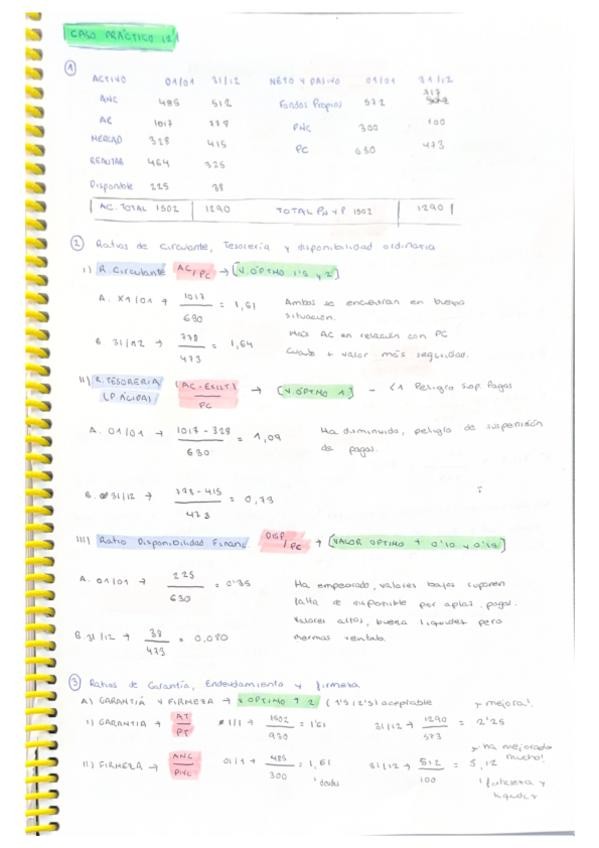 CASO PRÁCTICO 12.1
①
ACTIVO 01/01 31/12 NETO Y PASIVO 01/01 31/12
ANC 485 512 Fondos Propios 572 717
AC 1017 778 PNC 300 100
MERCAD 328 415 PC 630 473
REALIZAB 464 325
Disponible 225 38
AC. TOTAL 1502 1290 TOTAL PN y P 1502 1290
② Ratios de Circulante, Tesorería y disponibilidad ordinaria
I) R. Circulante AC/PC → [V. ÓPTIMO 1'5 y 2]
A. 01/01 → 1017 / 630 = 1,61 Ambos se encuentran en buena situación.
B. 31/12 → 778 / 473 = 1,64 Más AC en relación con PC
Cuanto + valor más seguridad.
II) R. TESORERIA (P. ÁCIDA) (AC-EXIST.) / PC → [V. ÓPTIMO 1] - <1 Peligro Sup. Pagos
A. 01/01 → 1017 - 328 / 630 = 1,09 Ha disminuido, peligro de suspensión
de pagos.
B. 31/12 → 778 - 415 / 473 = 0,73
III) Ratio Disponibilidad Financ. DISP/PC → [VALOR OPTIMO → 0'10 y 0'15]
A. 01/01 → 225 / 630 = 0'35 Ha empeorado, valores bajos suponen
falta de disponible por aplaz. pagos.
Valores altos, buena liquidez pero
B. 31/12 → 38 / 473 = 0,080 mermas rentab.
③ Ratios de Garantía, Endeudamiento y firmeza
A) GARANTIA Y FIRMEZA → V OPTIMO → 2 (1'5 / 2'5) aceptable → mejora!
I) GARANTIA → AT / PT → 1/1 → 1502 / 930 = 1'61 31/12 → 1290 / 573 = 2'25
→ ha mejorado mucho!
II) FIRMEZA → ANC / PNC 01/1 → 485 / 300 = 1,61 31/12 → 512 / 100 = 5,12
liquidez